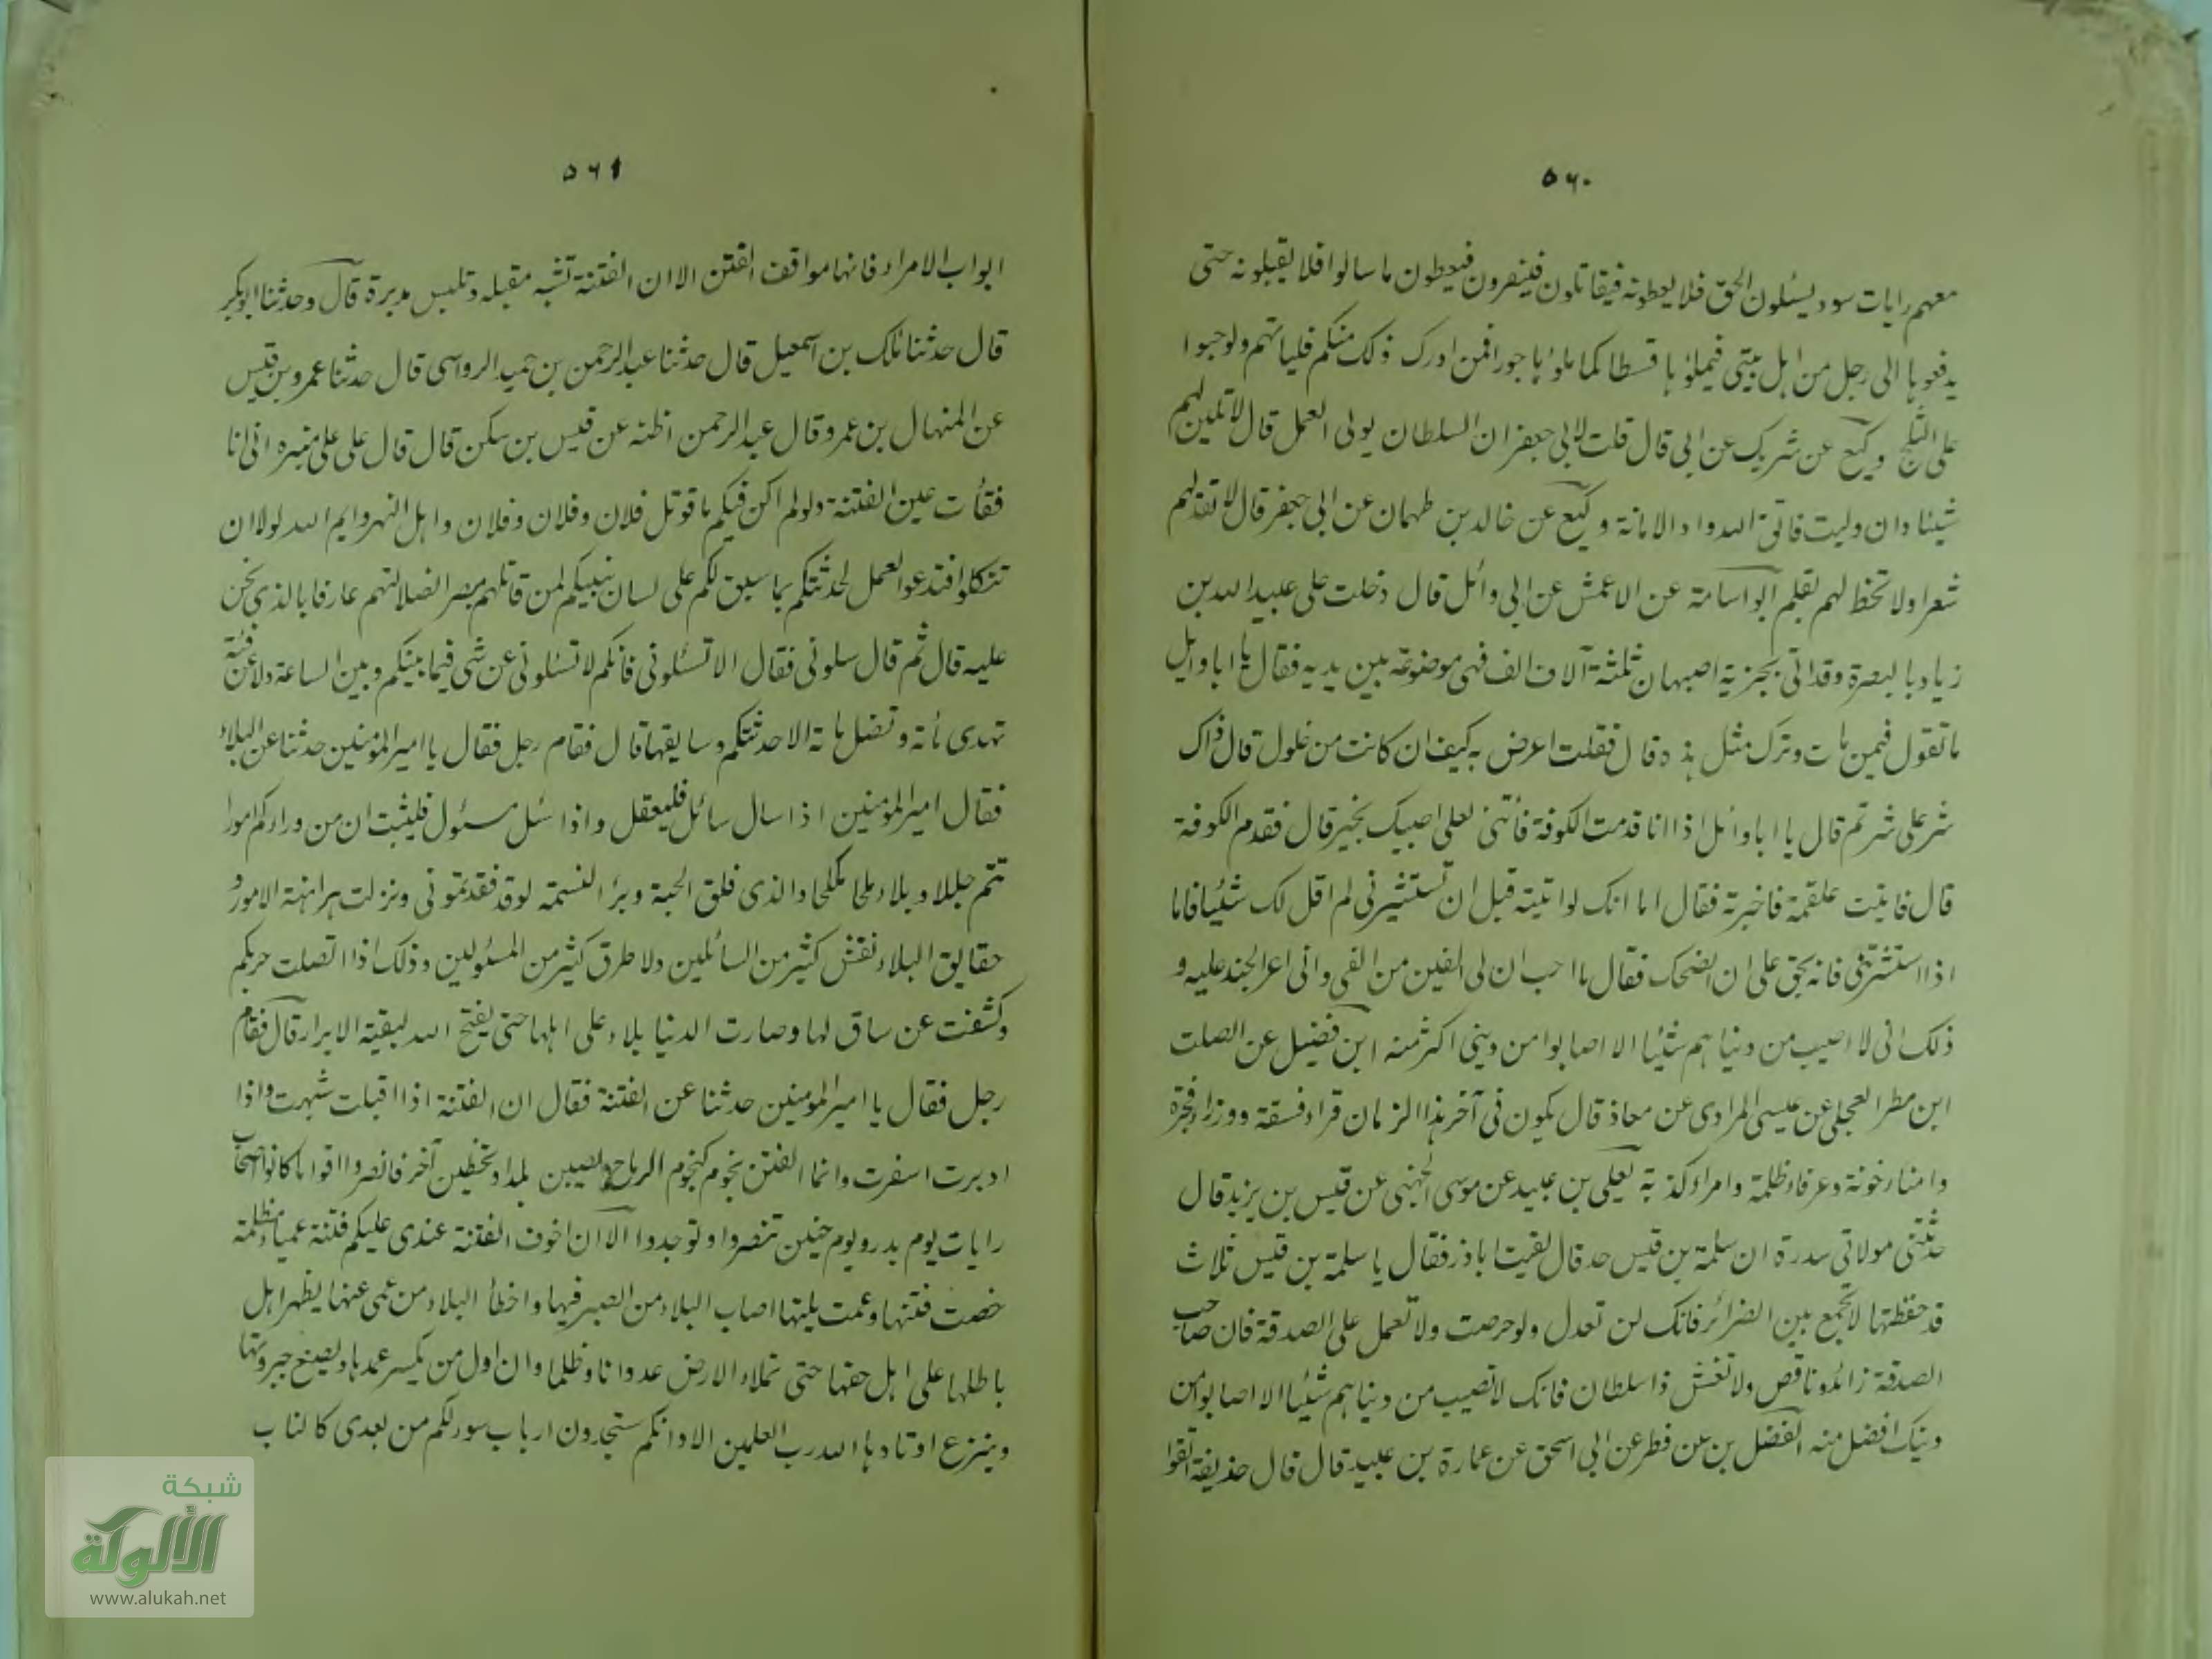 ٥٦٠
معهم رايات سود يسئلون الحق فلا يعطونه فيقاتلون فينصرون فيعطون ما سالوا فلا يقبلونه حتى
يدفعوها الى رجل من اهل بيتى فيملؤها قسطا كما ملؤها جورا فمن ادرك ذلك منكم فلياتهم ولو حبوا
على الثلج وكيع عن شريك عن ابى قال قلت لابى جعفر ان السلطان يولى العمل قال لا تلين لهم
شيئا وان وليت فاتق الله واد الامانة وكيع عن خالد بن طهمان عن ابى جعفر قال لا تعد لهم
شعرا ولا تخط لهم بقلم ابو اسامة عن الاعمش عن ابى وائل قال دخلت على عبيد الله بن
زياد بالبصرة وقد اتى بجزية اصبهان ثلثة آلاف الف فهى موضوعة بين يديه فقال يا ابا وايل
ما تقول فيمن مات وترك مثل هذه قال فقلت اعرض به كيف ان كانت من غلول قال ذاك
شر على شر ثم قال يا ابا وائل اذا انا قدمت الكوفة فأتنى لعلى اصيبك بخير قال فقدم الكوفة
قال فاتيت علقمة فاخبرته فقال اما انك لو اتيته قبل ان تستشيرنى لم اقل لك شئيا فاما
اذا استشرتنى فانه يحق على ان انصحك فقال ما احب ان لى الفين من الفى وانى اعز الجند عليه و
ذلك انى لا اصيب من دنياهم شئيا الا اصابوا من دينى اكثر منه ابن فضيل عن الصلت
ابن مطر العجلى عن عيسى المرادى عن معاذ قال يكون فى آخر هذا الزمان قراء فسقة ووزراء فجرة
وامناء خونة وعرفاء ظلمة وامراء كذبة يعلى بن عبيد عن موسى الجهنى عن قيس بن يزيد قال
حدثتنى مولاتى سدرة ان سلمة بن قيس حد قال لقيت اباذر فقال يا سلمة بن قيس ثلاث
قد حفظتها لا تجمع بين الضرائر فانك لن تعدل ولو حرصت ولا تعمل على الصدقة فان صاحب
الصدقة زائد وناقص ولا تغش ذا سلطان فانك لا تصيب من دنياهم شئيا الا اصابوا من
دينك افضل منه الفضل بن عن فطر عن ابى اسحق عن عمارة بن عبيد قال قال حذيفة اتقوا
٥٦١
ابواب الامراء فانها مواقف الفتن الا ان الفتنة تشبه مقبلة وتلبس مدبرة قال وحدثنا ابو بكر
قال حدثنا ملك بن اسمعيل قال حدثنا عبد الرحمن بن حميد الرواسى قال حدثنا عمرو بن قيس
عن المنهال بن عمرو قال عبد الرحمن اظنه عن قيس بن سكن قال قال على على منبره انى انا
فقأت عين الفتنة ولو لم اكن فيكم ما قوتل فلان وفلان وفلان واهل النهر وايم الله لولا ان
تتكلوا فتدعوا العمل لحدثتكم بما سبق لكم على لسان نبيكم لمن قاتلهم مبصر الضلالتهم عارفا بالذى نحن
عليه قال ثم قال سلونى فقال الا تسئلونى فانكم لا تسئلونى عن شى فيما بينكم وبين الساعة ولا عن فئة
تهدى مأته وتضل ماتة الا حدثتكم وسايقها قال فقام رجل فقال يا امير المومنين حدثنا عن البلاء
فقال امير المومنين اذا سال سائل فليعقل واذا سئل مسئول فليثبت ان من وراءكم امورا
تتم جللا وبلاء ملحا مكلحا والذى فلق الحبة وبرأ النسمة لو قد فقدتمونى ونزلت هراهنة الامور و
حقايق البلاء نقش كثير من السائلين ولا طرق كثير من المسئولين وذلك اذا اتصلت حربكم
وكشفت عن ساق لها وصارت الدنيا بلاء على اهلها حتى يفتح الله لبقية الابرار قال فقام
رجل فقال يا امير المومنين حدثنا عن الفتنة فقال ان الفتنة اذا اقبلت شبهت واذا
ادبرت اسفرت وانما الفتن نجوم كنجوم الرياح يصيبن بلدا ويخطين آخر فانصروا اقواما كانوا اصحاب
رايات يوم بدر ويوم حنين تنصروا وتوجدوا الا ان اخوف الفتنة عندى عليكم فتنة عمياء مظلمة
خصت فتنها وعمت بليتها اصاب البلاء من ابصر فيها واخطأ البلاء من عمى عنها يظهر اهل
باطلها على اهل حقها حتى تملاء الارض عدوانا وظلما وان اول من يكسر عمدها ويضع جبروتها
وينزع اوتادها الله رب العلمين الا وانكم ستجدون ارباب سوء لكم من بعدى كالناب
شبكة
الألوكة
www.alukah.net